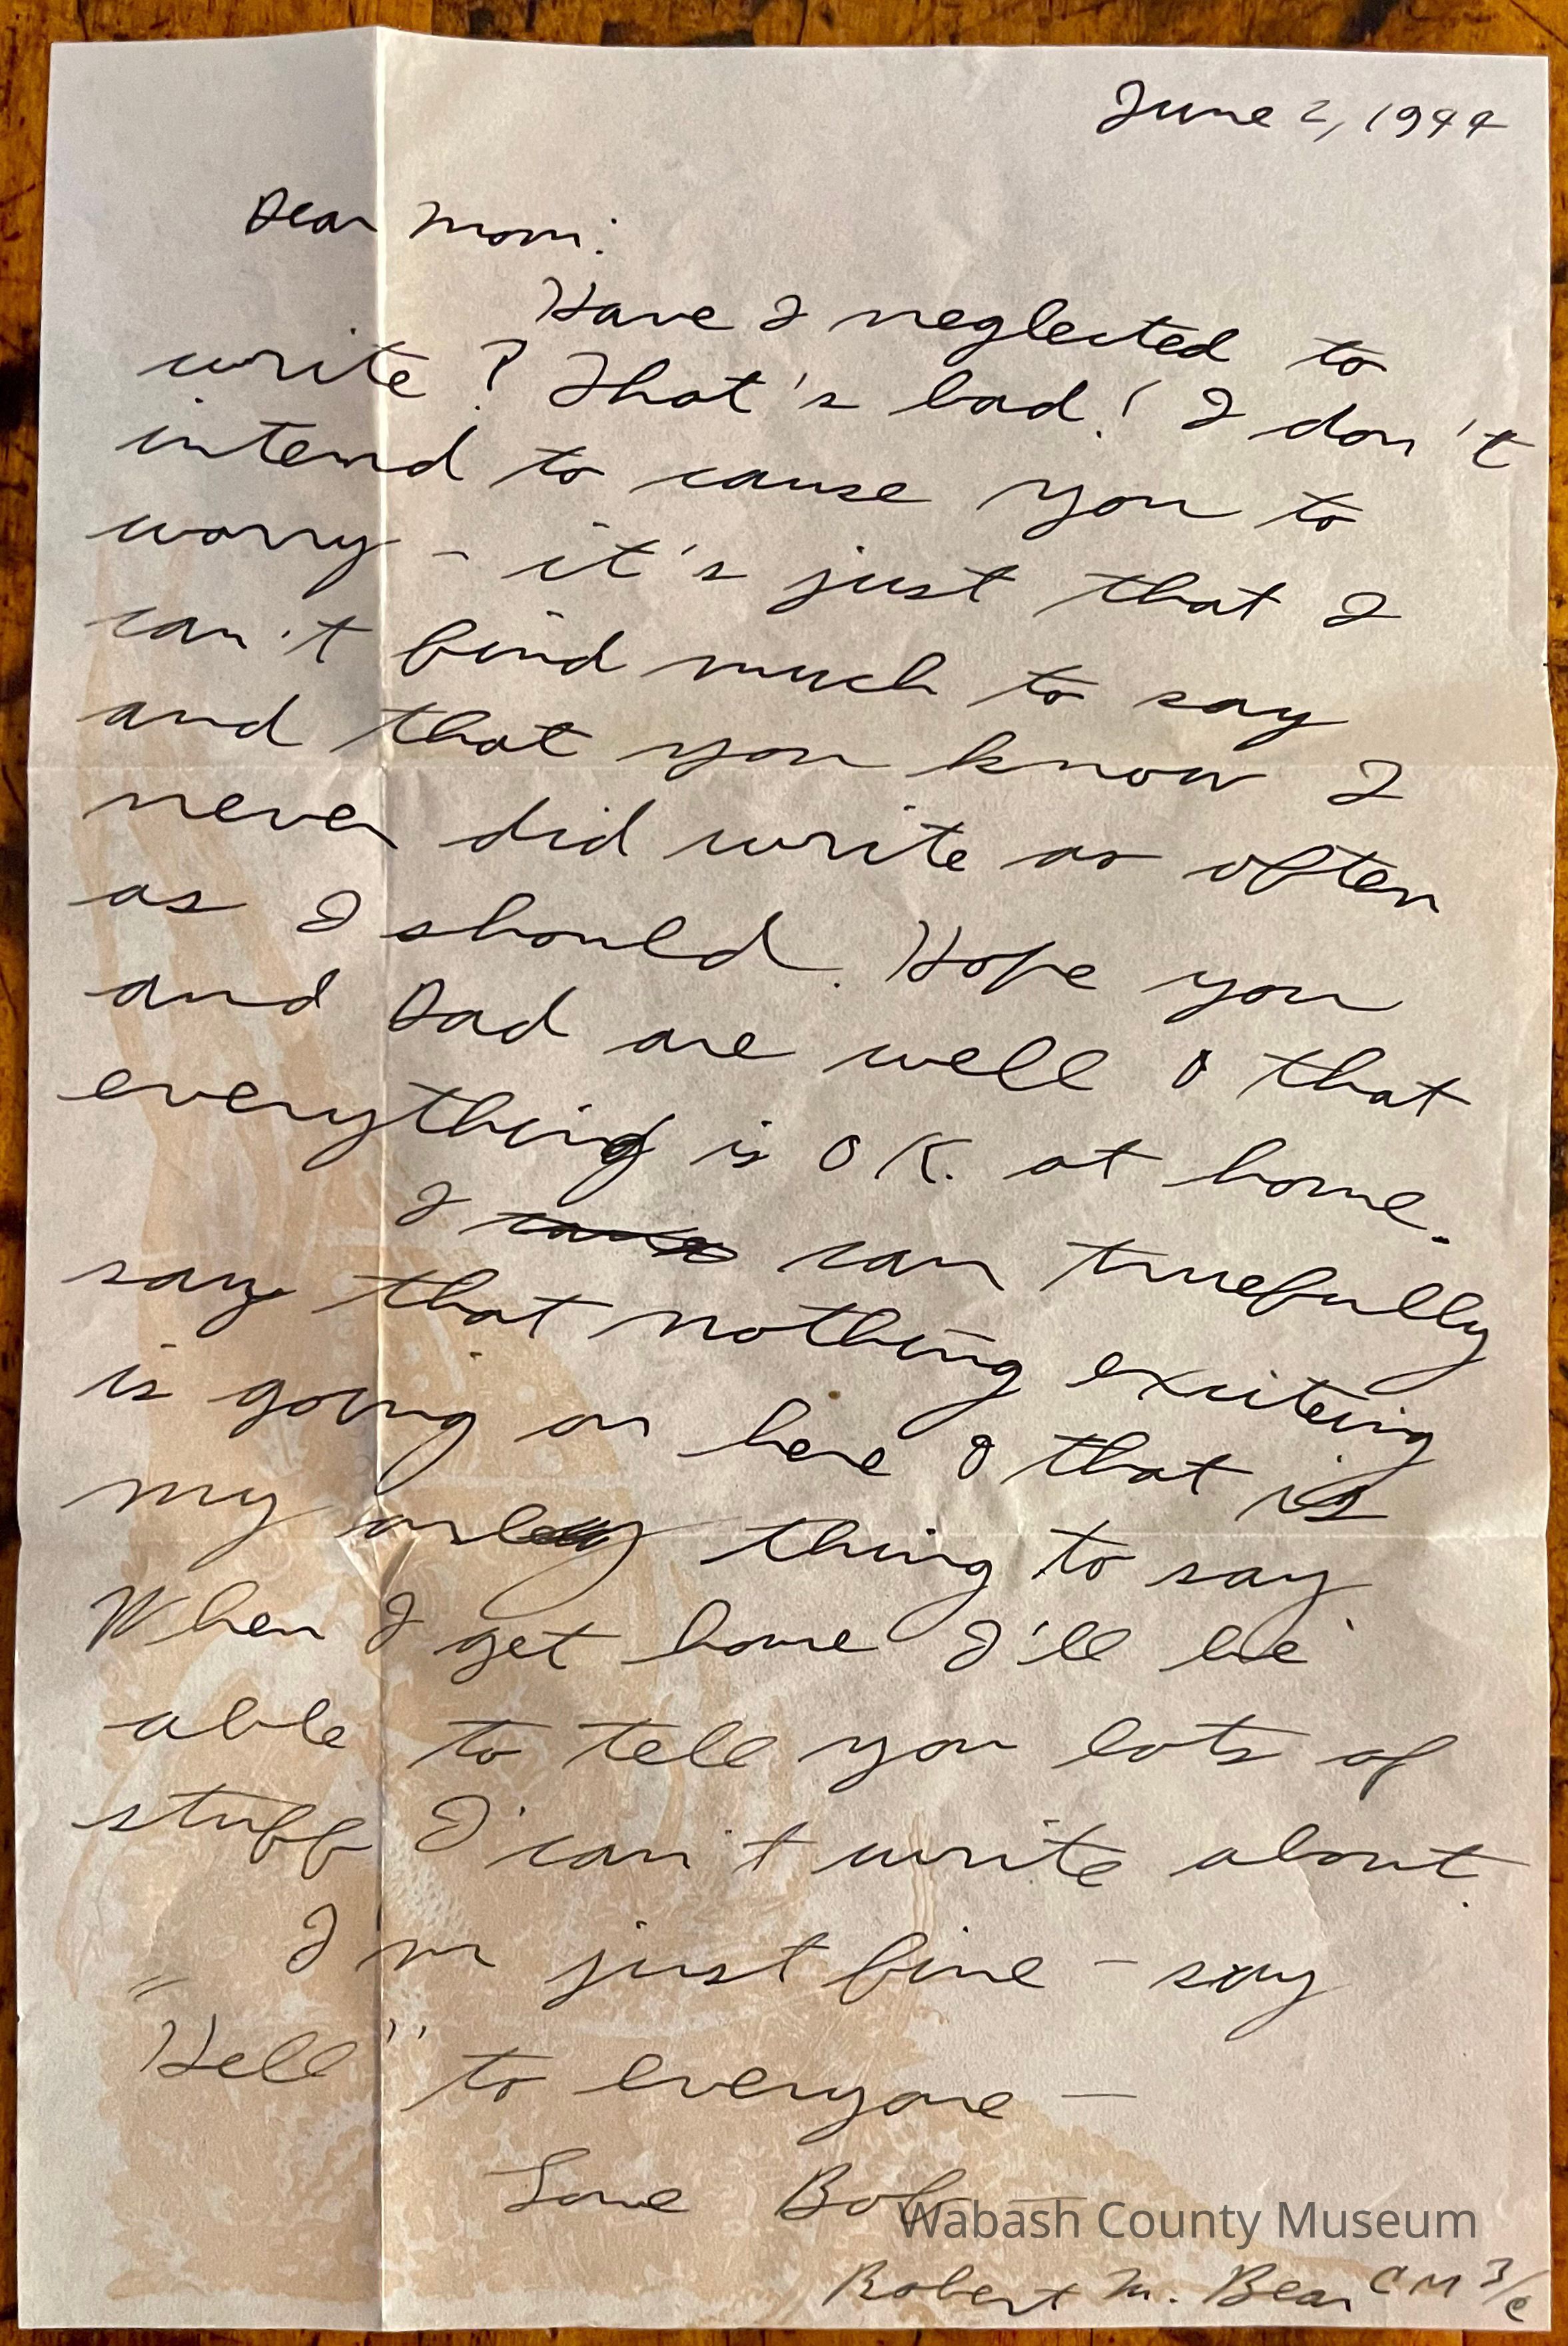 June 2, 1944
Dear Mom:
Have I neglected to
write? That's bad! I don't
intend to cause you to
worry - it's just that I
can't find much to say
and that you know I
never did write as often
as I should. Hope you
and Dad are well & that
everything is OK. at home.
I can truefully
say that nothing exciteing
is going on here & that is
my only thing to say
When I get home I'll be
able to tell you lots of
stuff I can't write about.
I'm just fine - say
"Hell" to everyone -
Love Bob
Wabash County Museum
Robert M. Bear CM 3/c